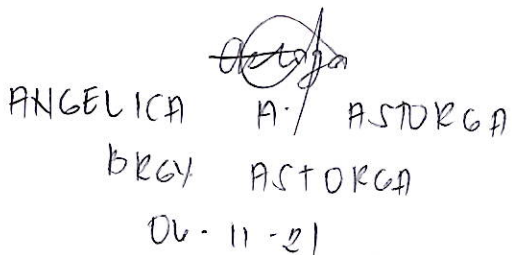 ANGELICA A. ASTORGA
BRGY ASTORGA
06-11-21